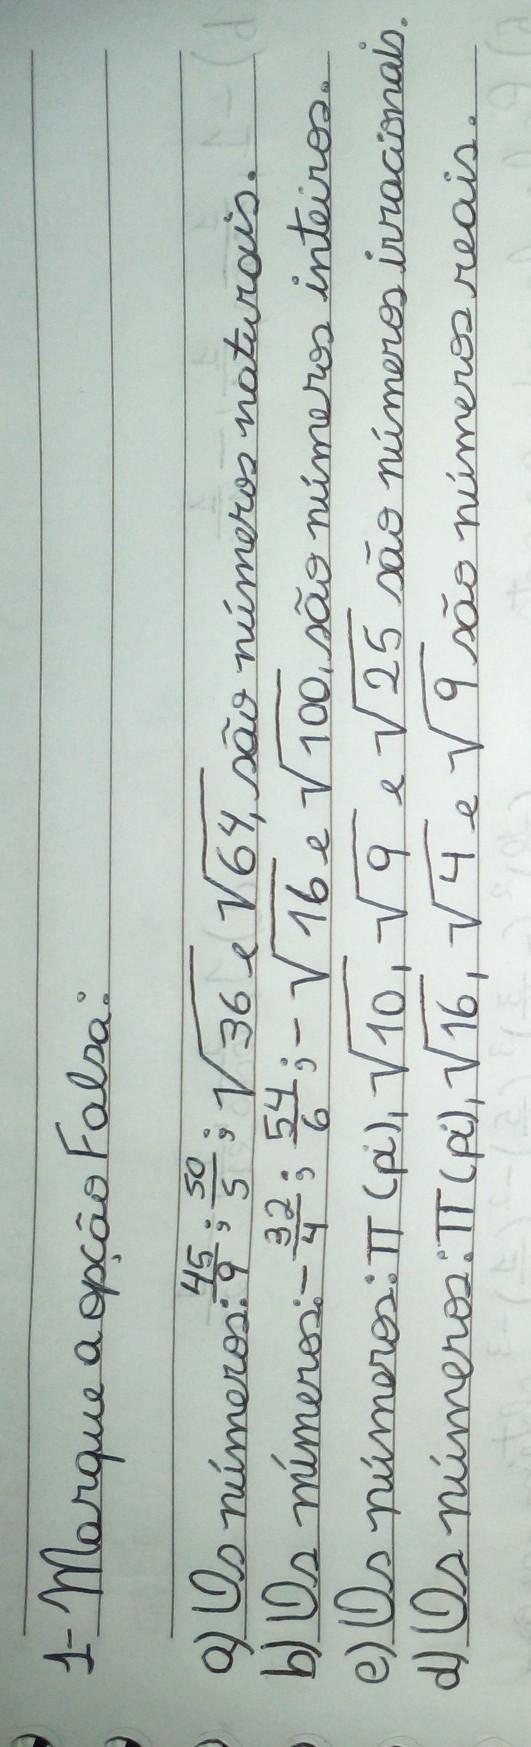 1- Marque a opção Falsa:
a) Os números: 45/9; 50/5; √36 e √64, são números naturais.
b) Os números: -32/4; 54/6; -√16 e √100, são números inteiros.
c) Os números: π (pi), √10, √9 e √25 são números irracionais.
d) Os números: π (pi), √16, √4 e √9 são números reais.